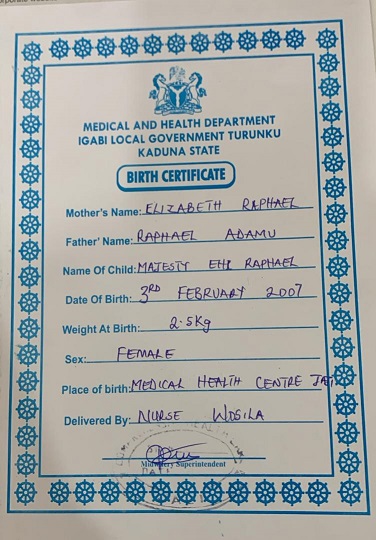 MEDICAL AND HEALTH DEPARTMENT
IGABI LOCAL GOVERNMENT TURUNKU
KADUNA STATE
BIRTH CERTIFICATE
Mother's Name: ELIZABETH RAPHAEL
Father' Name: RAPHAEL ADAMU
Name Of Child: MAJESTY EHI RAPHAEL
Date Of Birth: 3RD FEBRUARY 2007
Weight At Birth: 2.5Kg
Sex: FEMALE
Place of birth: MEDICAL HEALTH CENTRE
Delivered By: NURSE WOSILA
Superintendent